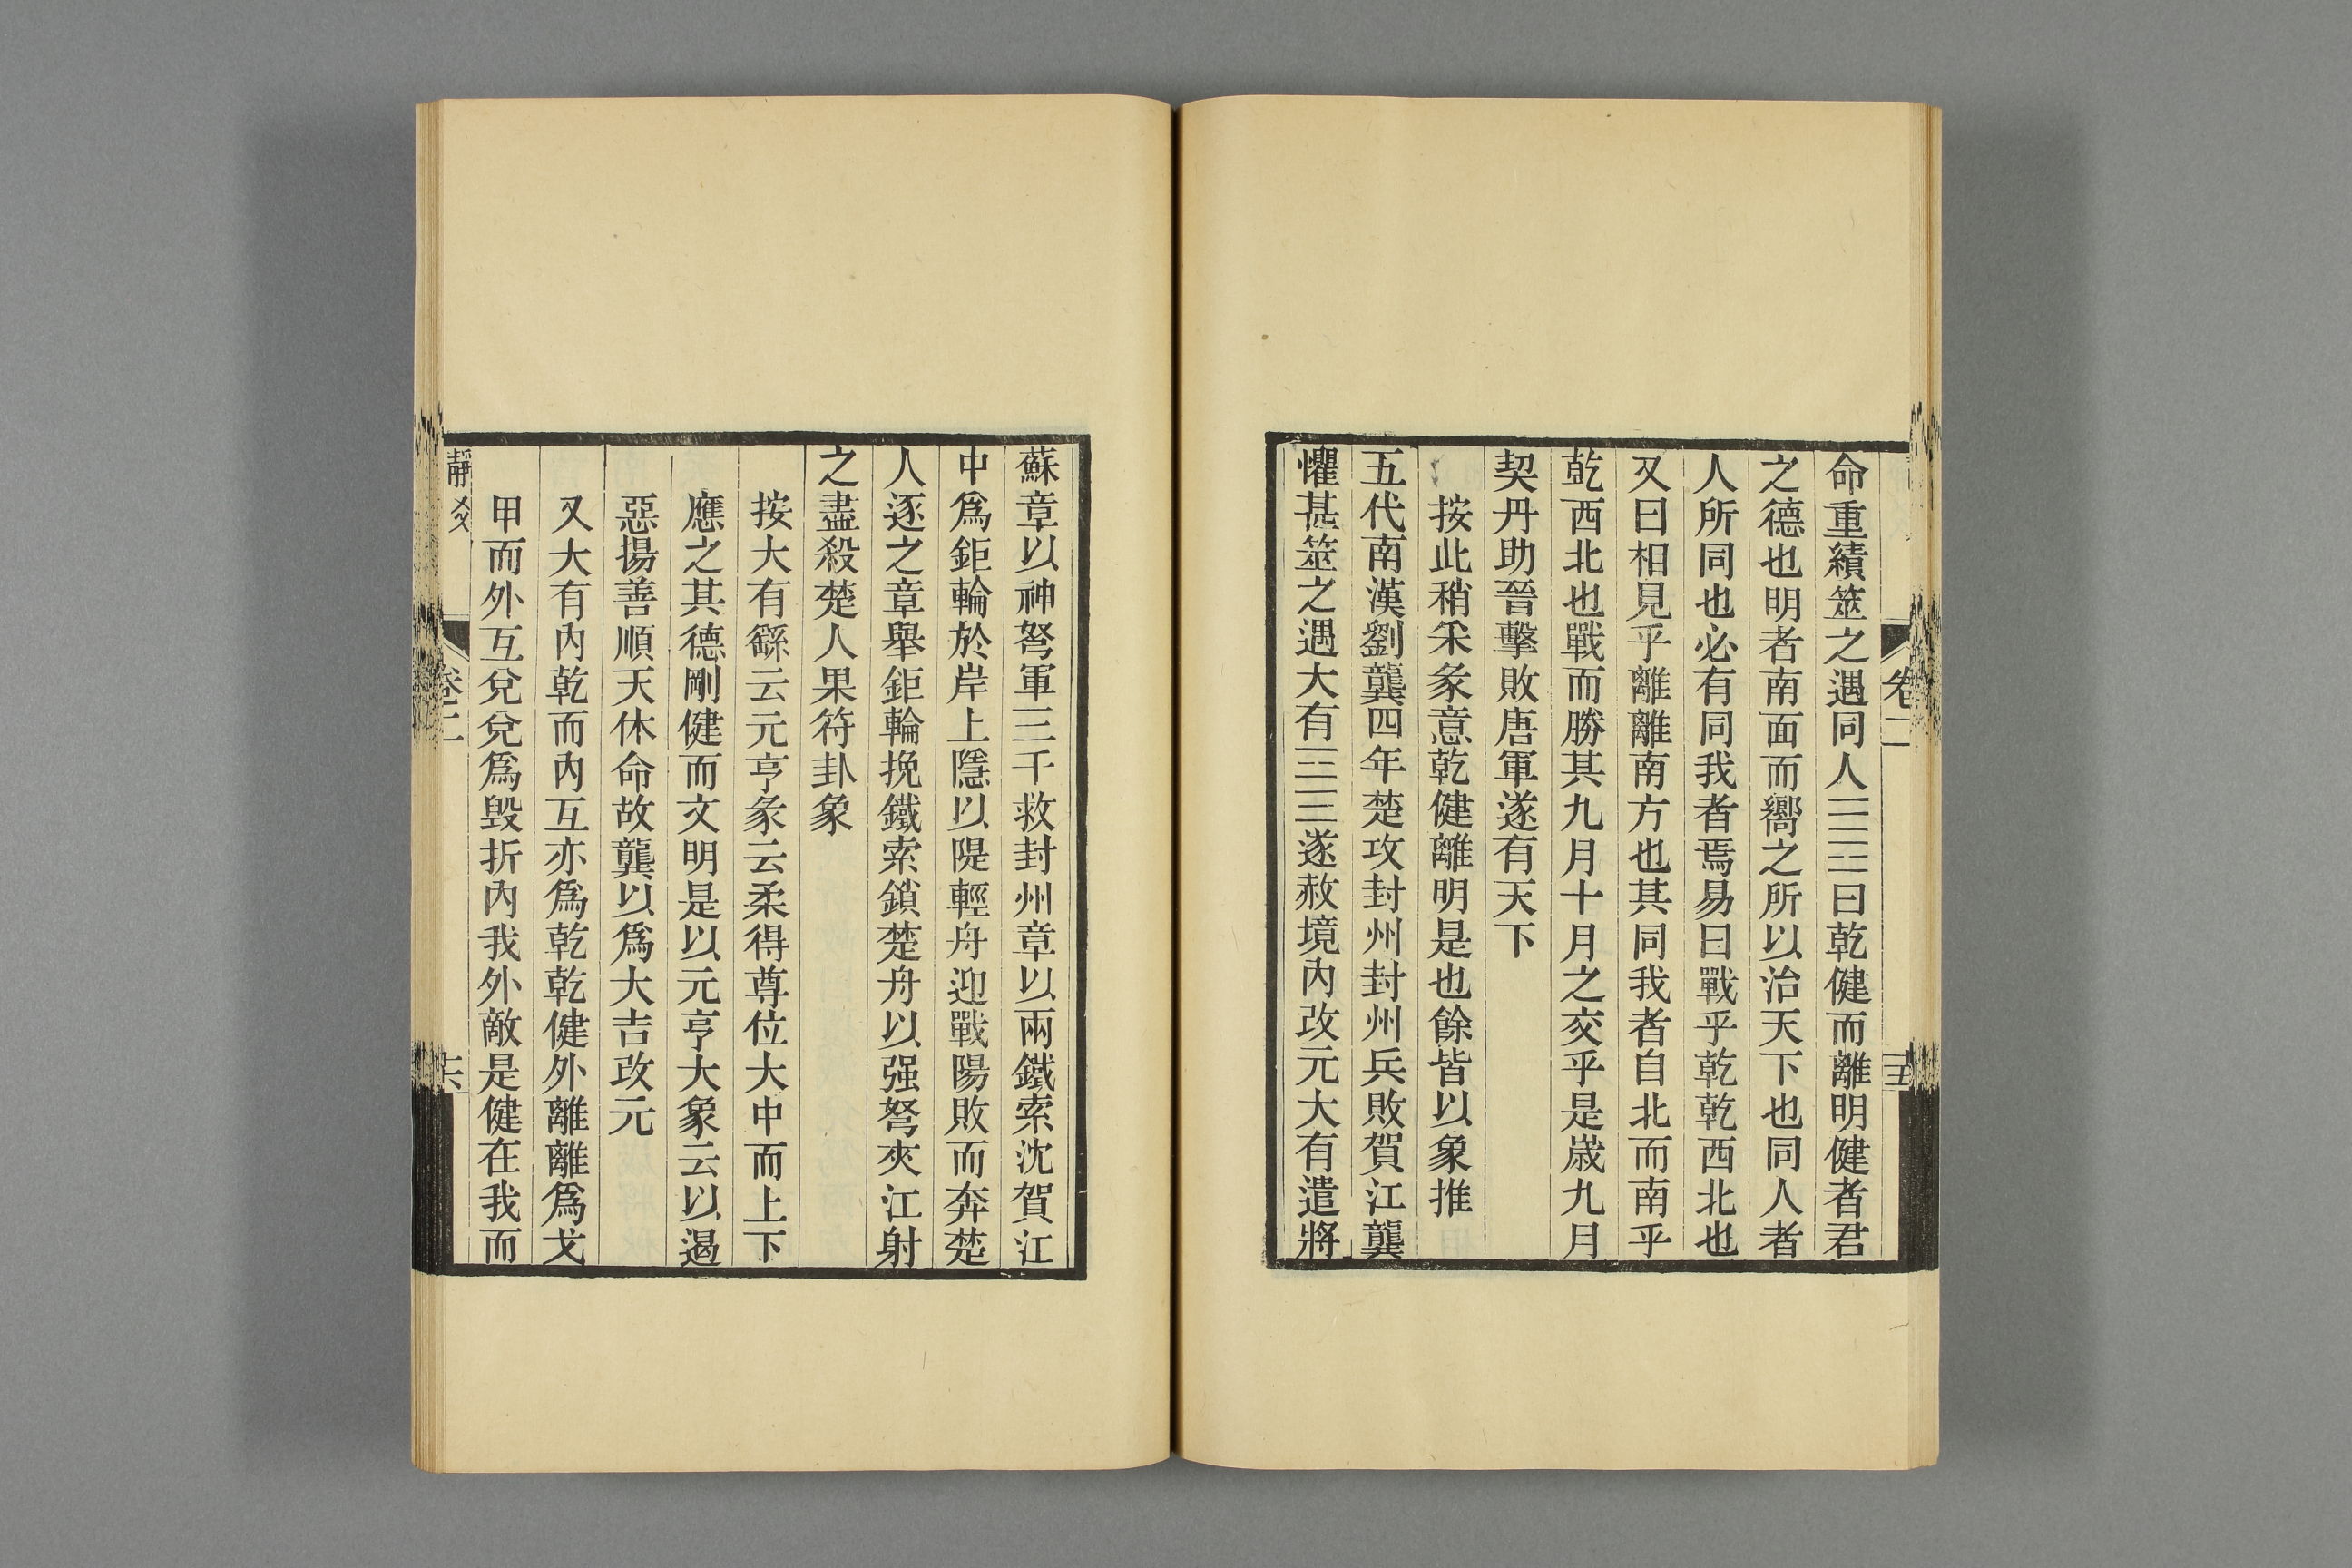 命重績筮之遇同人☰☲曰乾健而離明健者君
之德也明者南面而嚮之所以治天下也同人者
人所同也必有同我者焉易曰戰乎乾乾西北也
又曰相見乎離離南方也其同我者自北而南乎
乾西北也戰而勝其九月十月之交乎是歲九月
契丹助晉擊敗唐軍遂有天下
按此稍采彖意乾健離明是也餘皆以象推
五代南漢劉龑四年楚攻封州封州兵敗賀江龑
懼甚筮之遇大有☲☰遂赦境內改元大有遣將
卷二
蘇章以神弩軍三千救封州章以兩鐵索沈賀江
中爲鉅輪於岸上隱以隄輕舟迎戰陽敗而奔楚
人逐之章舉鉅輪挽鐵索鎖楚舟以强弩夾江射
之盡殺楚人果符卦象
按大有繇云元亨彖云柔得尊位大中而上下
應之其德剛健而文明是以元亨大象云以遏
惡揚善順天休命故龑以爲大吉改元
又大有內乾而內互亦爲乾乾健外離離爲戈
甲而外互兌兌爲毀折內我外敵是健在我而
卷二